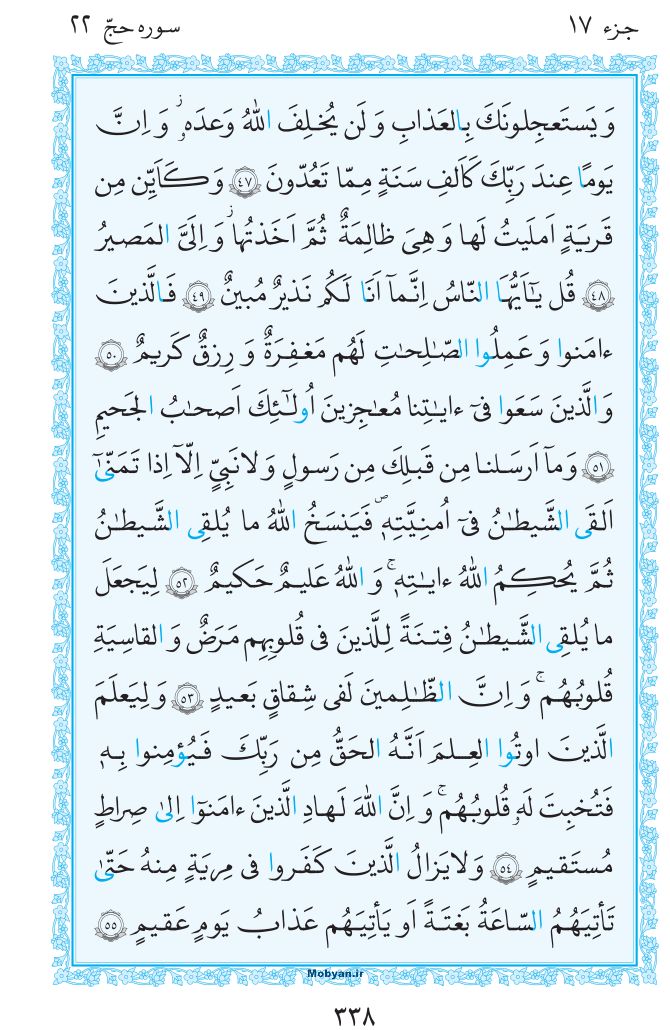 جزء ١٧
سوره حجّ ٢٢
وَ يَستَعجِلونَكَ بِالعَذابِ وَ لَن يُخلِفَ اللهُ وَعدَهۥ ۚ وَ اِنَّ
يَومًا عِندَ رَبِّكَ كَاَلفِ سَنَةٍ مِمّا تَعُدّونَ ﴿٤٧﴾ وَ كَاَيِّن مِن
قَريَةٍ اَملَيتُ لَها وَ هِىَ ظالِمَةٌ ثُمَّ اَخَذتُها ۚ وَ اِلَىَّ المَصيرُ
﴿٤٨﴾ قُل يٰٓاَيُّهَا النّاسُ اِنَّمآ اَنَا لَكُم نَذيرٌ مُبينٌ ﴿٤٩﴾ فَالَّذينَ
ءامَنوا وَ عَمِلُوا الصّٰلِحٰتِ لَهُم مَغفِرَةٌ وَ رِزقٌ كَريمٌ ﴿٥٠﴾
وَ الَّذينَ سَعَوا فىٓ ءايٰتِنا مُعٰجِزينَ اُولٰٓئِكَ اَصحٰبُ الجَحيمِ
﴿٥١﴾ وَ مآ اَرسَلنا مِن قَبلِكَ مِن رَسولٍ وَ لا نَبِىٍّ اِلّآ اِذا تَمَنّىٰٓ
اَلقَى الشَّيطٰنُ فىٓ اُمنِيَّتِهٖ ۖ فَيَنسَخُ اللهُ ما يُلقِى الشَّيطٰنُ
ثُمَّ يُحكِمُ اللهُ ءايٰتِهٖ ۗ وَ اللهُ عَليمٌ حَكيمٌ ﴿٥٢﴾ لِيَجعَلَ
ما يُلقِى الشَّيطٰنُ فِتنَةً لِلَّذينَ فى قُلوبِهِم مَرَضٌ وَ القاسِيَةِ
قُلوبُهُم ۗ وَ اِنَّ الظّٰلِمينَ لَفى شِقاقٍ بَعيدٍ ﴿٥٣﴾ وَ لِيَعلَمَ
الَّذينَ اوتُوا العِلمَ اَنَّهُ الحَقُّ مِن رَبِّكَ فَيُؤمِنوا بِهٖ
فَتُخبِتَ لَهۥ قُلوبُهُم ۗ وَ اِنَّ اللهَ لَهادِ الَّذينَ ءامَنوٓا اِلىٰ صِراطٍ
مُستَقيمٍ ﴿٥٤﴾ وَ لا يَزالُ الَّذينَ كَفَروا فى مِريَةٍ مِنهُ حَتّىٰ
تَأتِيَهُمُ السّاعَةُ بَغتَةً اَو يَأتِيَهُم عَذابُ يَومٍ عَقيمٍ ﴿٥٥﴾
Mobyan.ir
٣٣٨